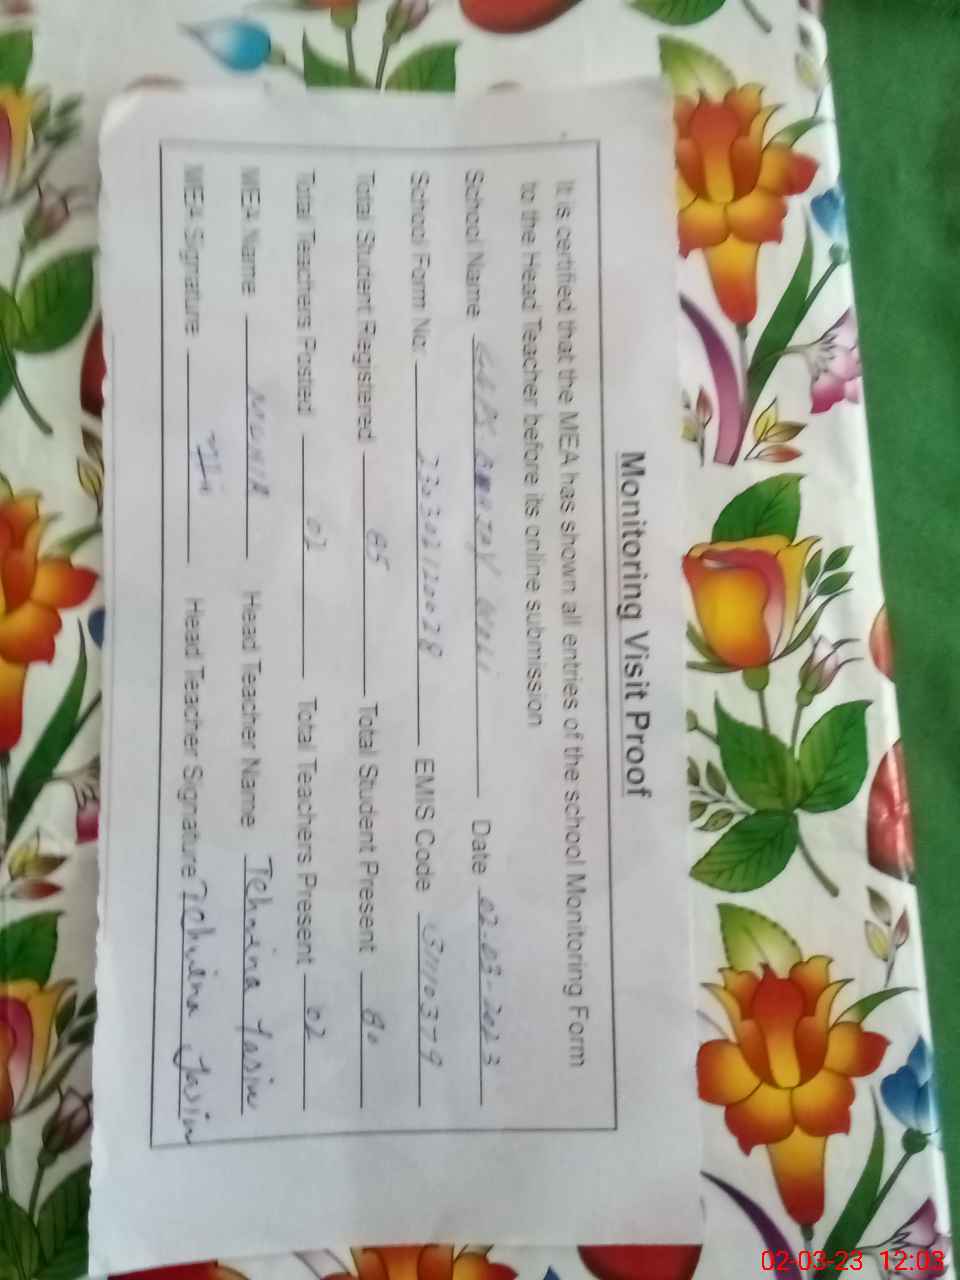 Monitoring Visit Proof
It is certified that the MEA has shown all entries of the school Monitoring Form
to the Head Teacher before its online submission
School Name Date 02-03-2023
School Form No: 230302120028 EMIS Code 31110379
Total Student Registered 85 Total Student Present 80
Total Teachers Posted 02 Total Teachers Present 02
MEA Name MUNIR Head Teacher Name Tehmina Yasin
MEA Signature Head Teacher Signature Tehmina Yasin
02-03-23 12:03